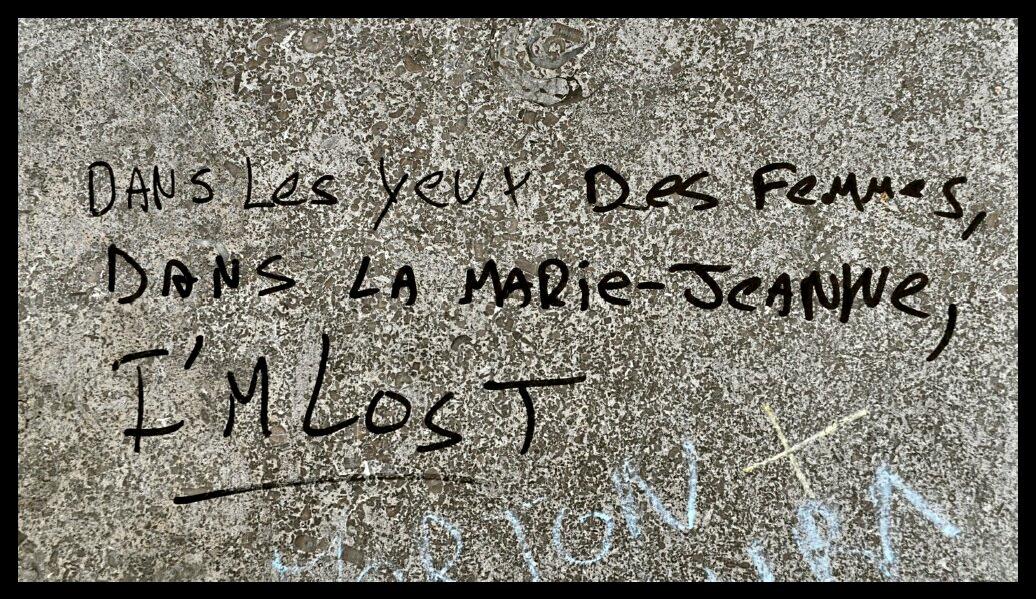 DANS Les yeux Des Femmes,
DANS LA MARie-JeANNe,
I'M LOST